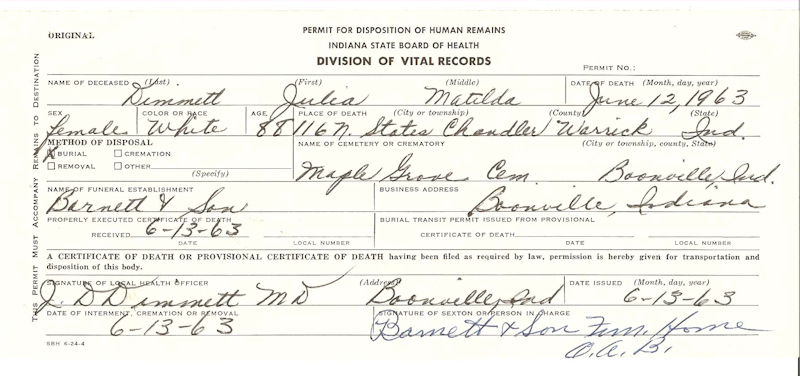 ORIGINAL
PERMIT FOR DISPOSITION OF HUMAN REMAINS
INDIANA STATE BOARD OF HEALTH
DIVISION OF VITAL RECORDS
PERMIT NO.:
This Permit Must Accompany Remains to Destination
NAME OF DECEASED (Last) (First) (Middle) DATE OF DEATH (Month, day, year)
Dimmett Julia Matilda June 12, 1963
SEX COLOR OR RACE AGE PLACE OF DEATH (City or township) (County) (State)
Female White 88 116 N. States Chandler Warrick Ind.
METHOD OF DISPOSAL NAME OF CEMETERY OR CREMATORY (City or township, county, State)
X BURIAL CREMATION
REMOVAL OTHER
(Specify)
Maple Grove Cem. Boonville, Ind.
NAME OF FUNERAL ESTABLISHMENT BUSINESS ADDRESS
Barnett & Son Boonville, Indiana
PROPERLY EXECUTED CERTIFICATE OF DEATH BURIAL TRANSIT PERMIT ISSUED FROM PROVISIONAL
RECEIVED 6-13-63 CERTIFICATE OF DEATH
DATE LOCAL NUMBER DATE LOCAL NUMBER
A CERTIFICATE OF DEATH OR PROVISIONAL CERTIFICATE OF DEATH having been filed as required by law, permission is hereby given for transportation and
disposition of this body.
SIGNATURE OF LOCAL HEALTH OFFICER (Address) DATE ISSUED (Month, day, year)
J. D Dimmett MD Boonville, Ind 6-13-63
DATE OF INTERMENT, CREMATION OR REMOVAL SIGNATURE OF SEXTON OR PERSON IN CHARGE
6-13-63 Barnett & Son Fun. Home
O.A.B.
SBH 6-24-4